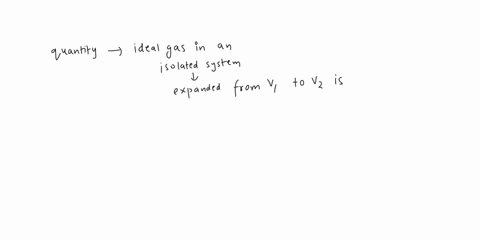 quantity → ideal gas in an
isolated system
↓
expanded from V₁ to V₂ is